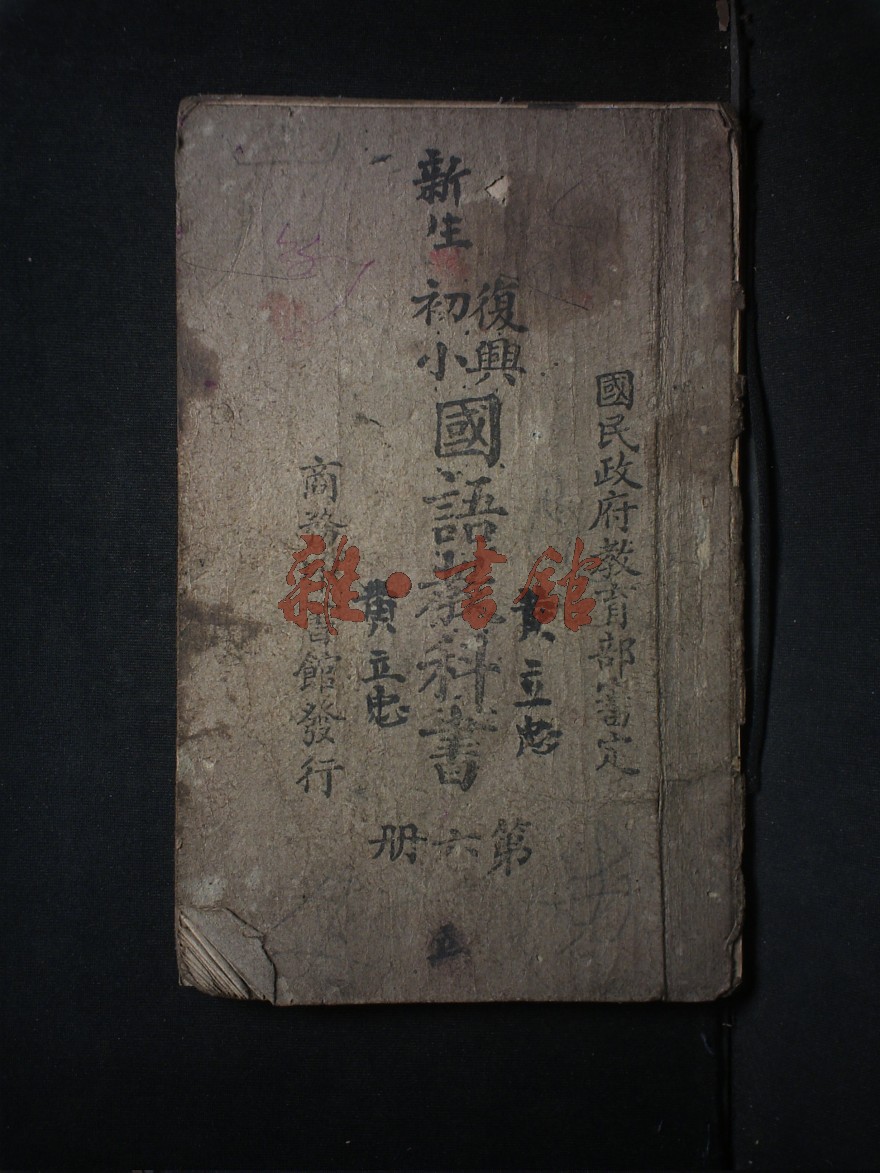 國民政府教育部審定
復興
初小
國語教科書
第六册
新生
黄立忠
黄立忠
商務印書館發行
雜·書館